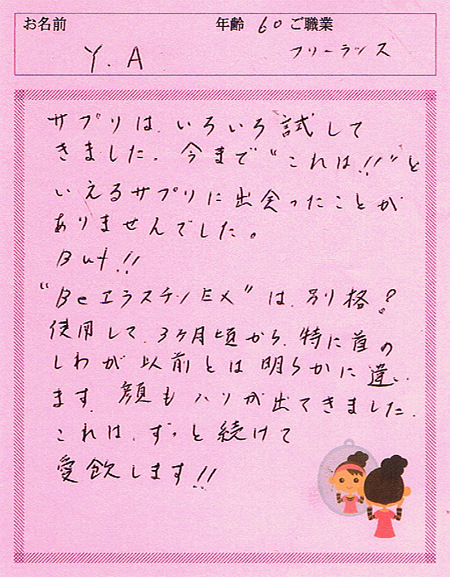 お名前 年齢 60 ご職業
Y.A フリーランス
サプリは、いろいろ試して
きました。今まで“これは!!”と
いえるサプリに出会ったことが
ありませんでした。
But!!
“BeエラスチンEX”は、別格?
使用して、3ヶ月頃から、特に首の
しわが以前とは明らかに違い
ます。顔もハリが出てきました。
これは、ずっと続けて
愛飲します!!